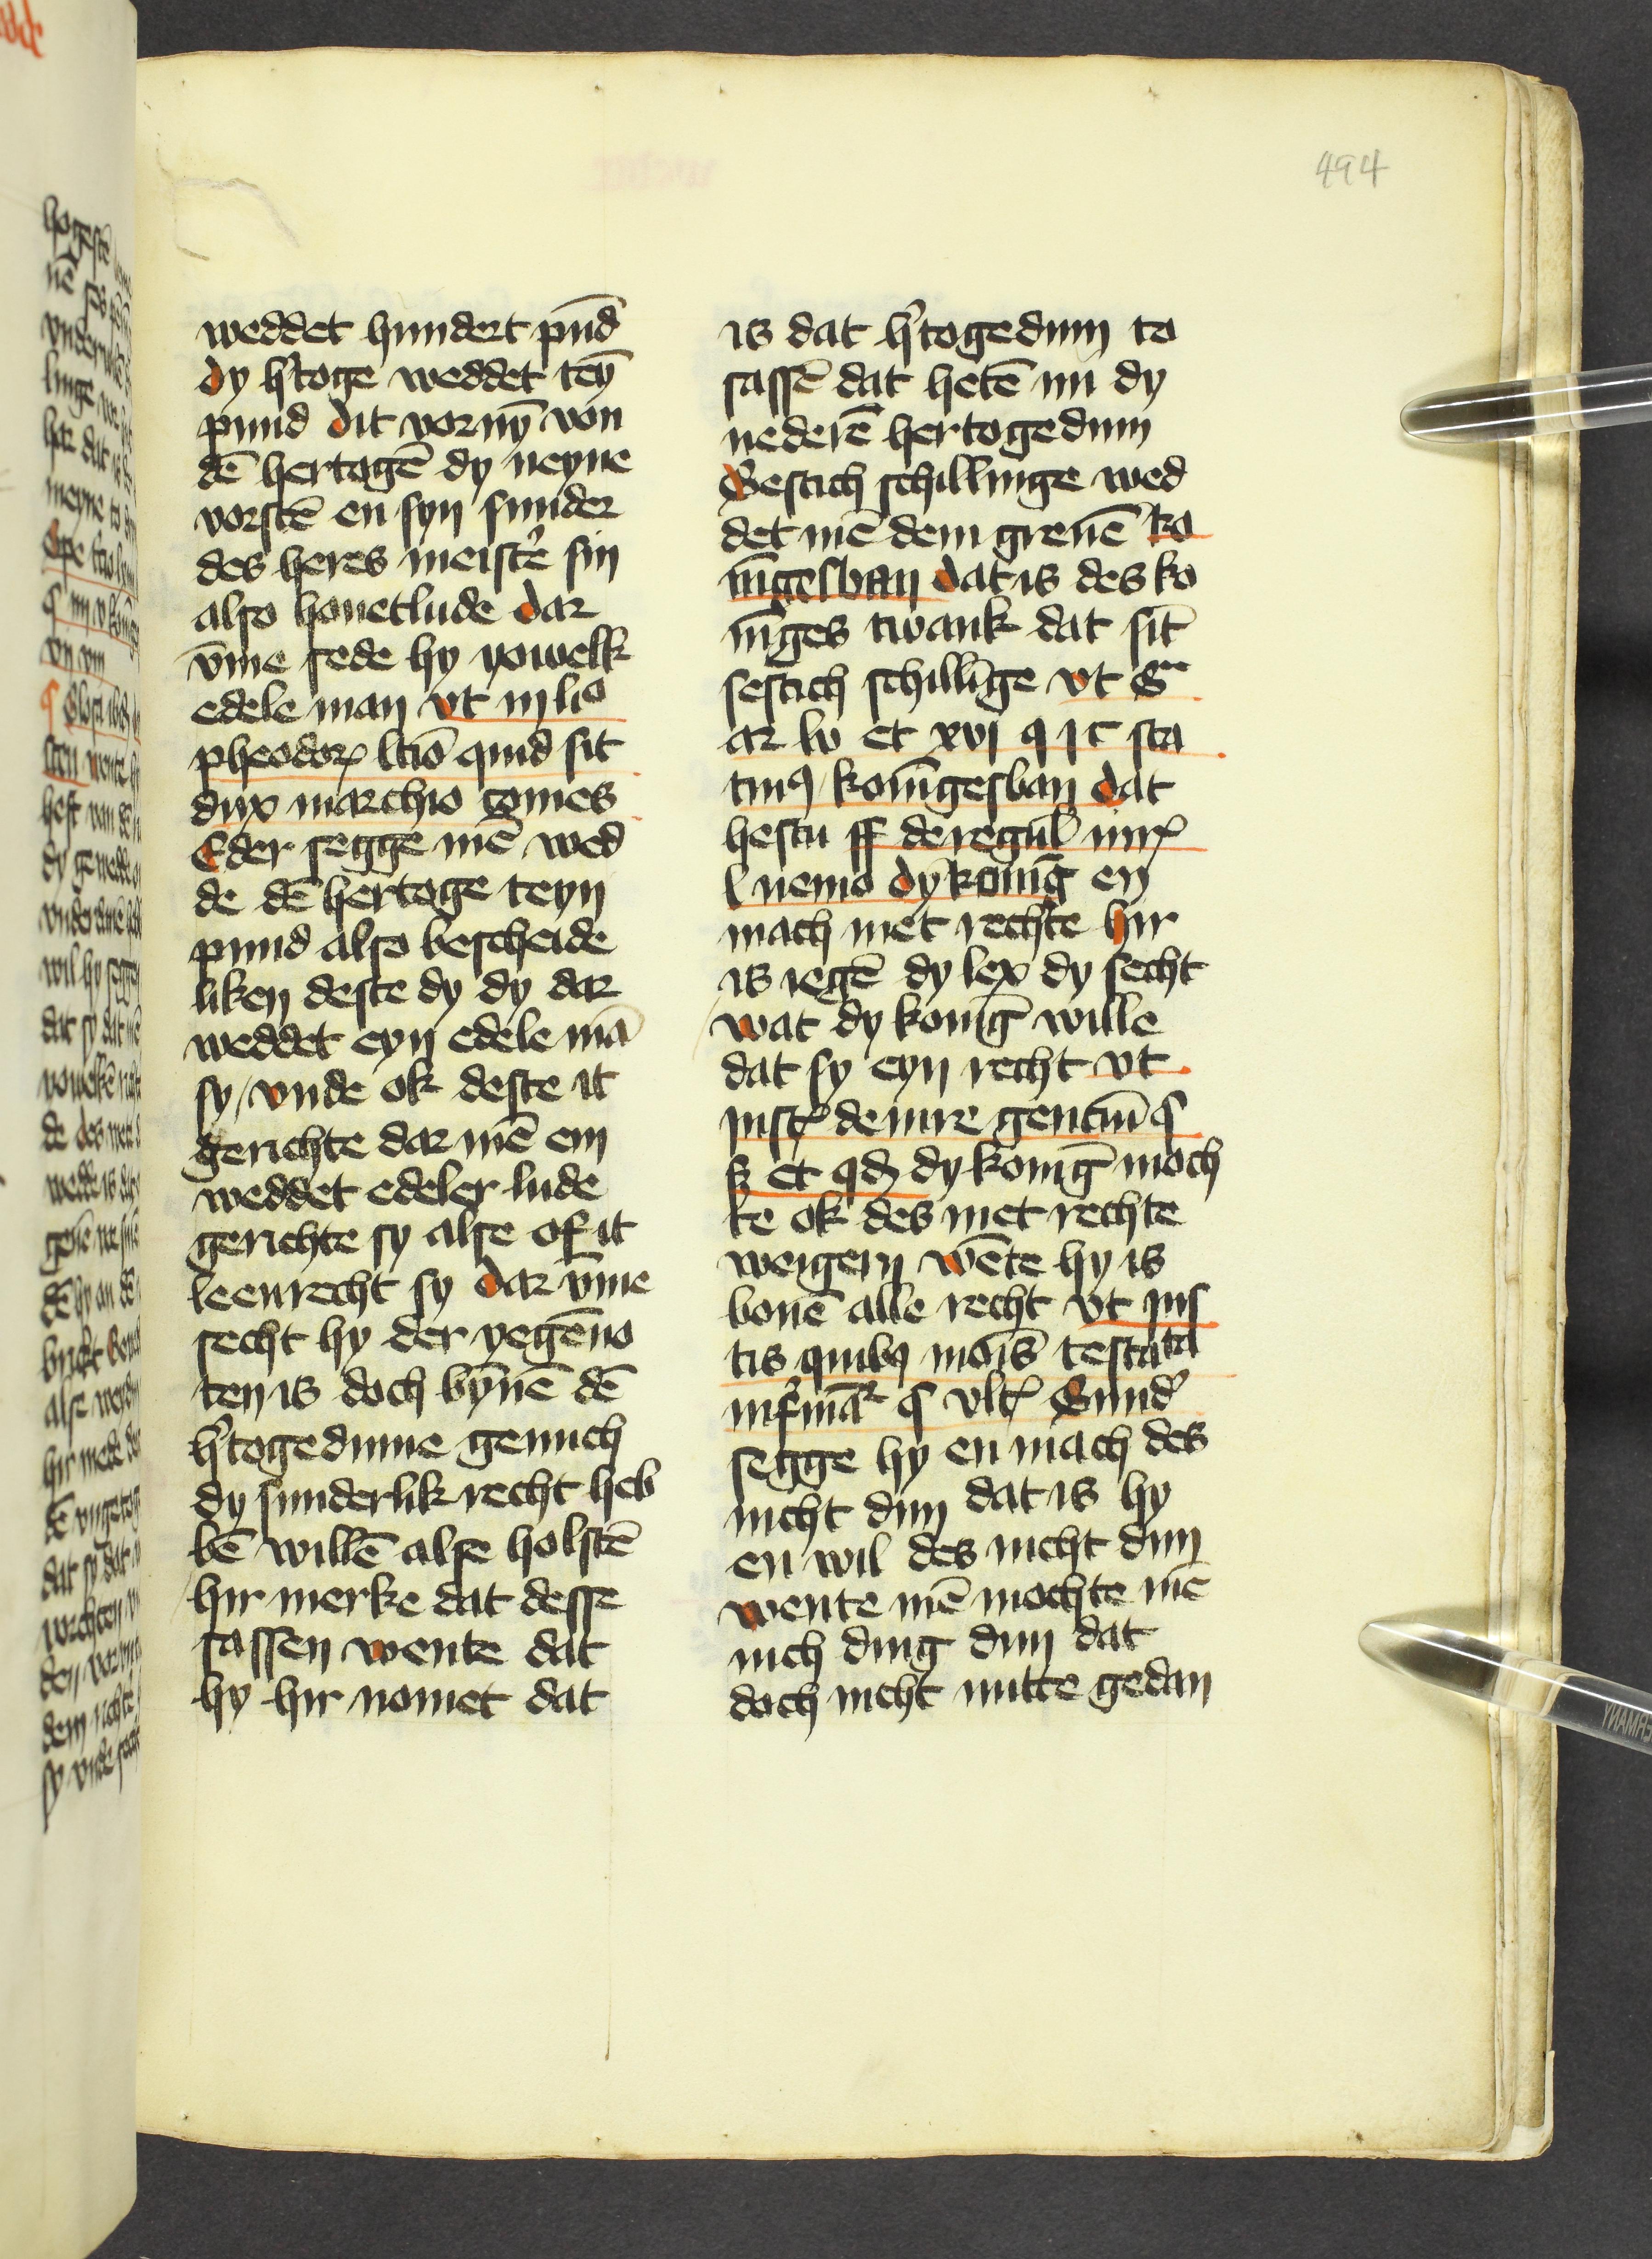 494
weddet hundert pūd
dy h'toge weddet teȳ
pund dit vornȳ von
dē hertogē dy neyne
vorstē en syn sunder
des heres meist'e sin
also houetlude dar
v̄me sede hy yowelk
edele man vt in li°
pheodoꝝ ltiō quid sit
dux marchio comes
Eder segge mē wed
de dē hertoge teyn
pund also bescheide
liken deste dy dy dar
weddet eyn edele mā
sy / vnde ok deste it
gerichte dar mē em
weddet edeler lude
gerichte sy alse of it
leenrecht sy dar v̄me
secht hy der yegēno
ten is doch bȳnē dē
h'togedume genuch
dy sunderlik recht heb
bē willē alse holstē
hir merke dat desse
sassen wente dat
hy hir nomet dat
is dat h'togedum to
sassē dat hetē nu dy
nederē hertogedum
Sestich schillinge wed
det mē dem greuē ko
nīgesban dat is des ko
nīges twank dat sīt
sestich schillīge vt sͣ
ar lv et xvi q it sta
tiuꝰ / konīgesban dat
hestu ff de regul' iurꝭ
l nemo dy konīg en
mach met rechte hir
is iegē dy lex dy secht
wat dy konīg wille
dat sy eyn recht vt
instꝭ de iure gentiū §
ꝫ et qđ dy konīg moch
te ok des met rechte
weigern wēte hy is
bouē alle recht vt ins
tis quibꝰ mois testata
infīmāͬ § vltꝭ Sund'
segge hy en mach des
nicht dun dat is hy
en wil des nicht dun
wente mē mochte mē
nich ding dun dat
doch nicht nutte gedan